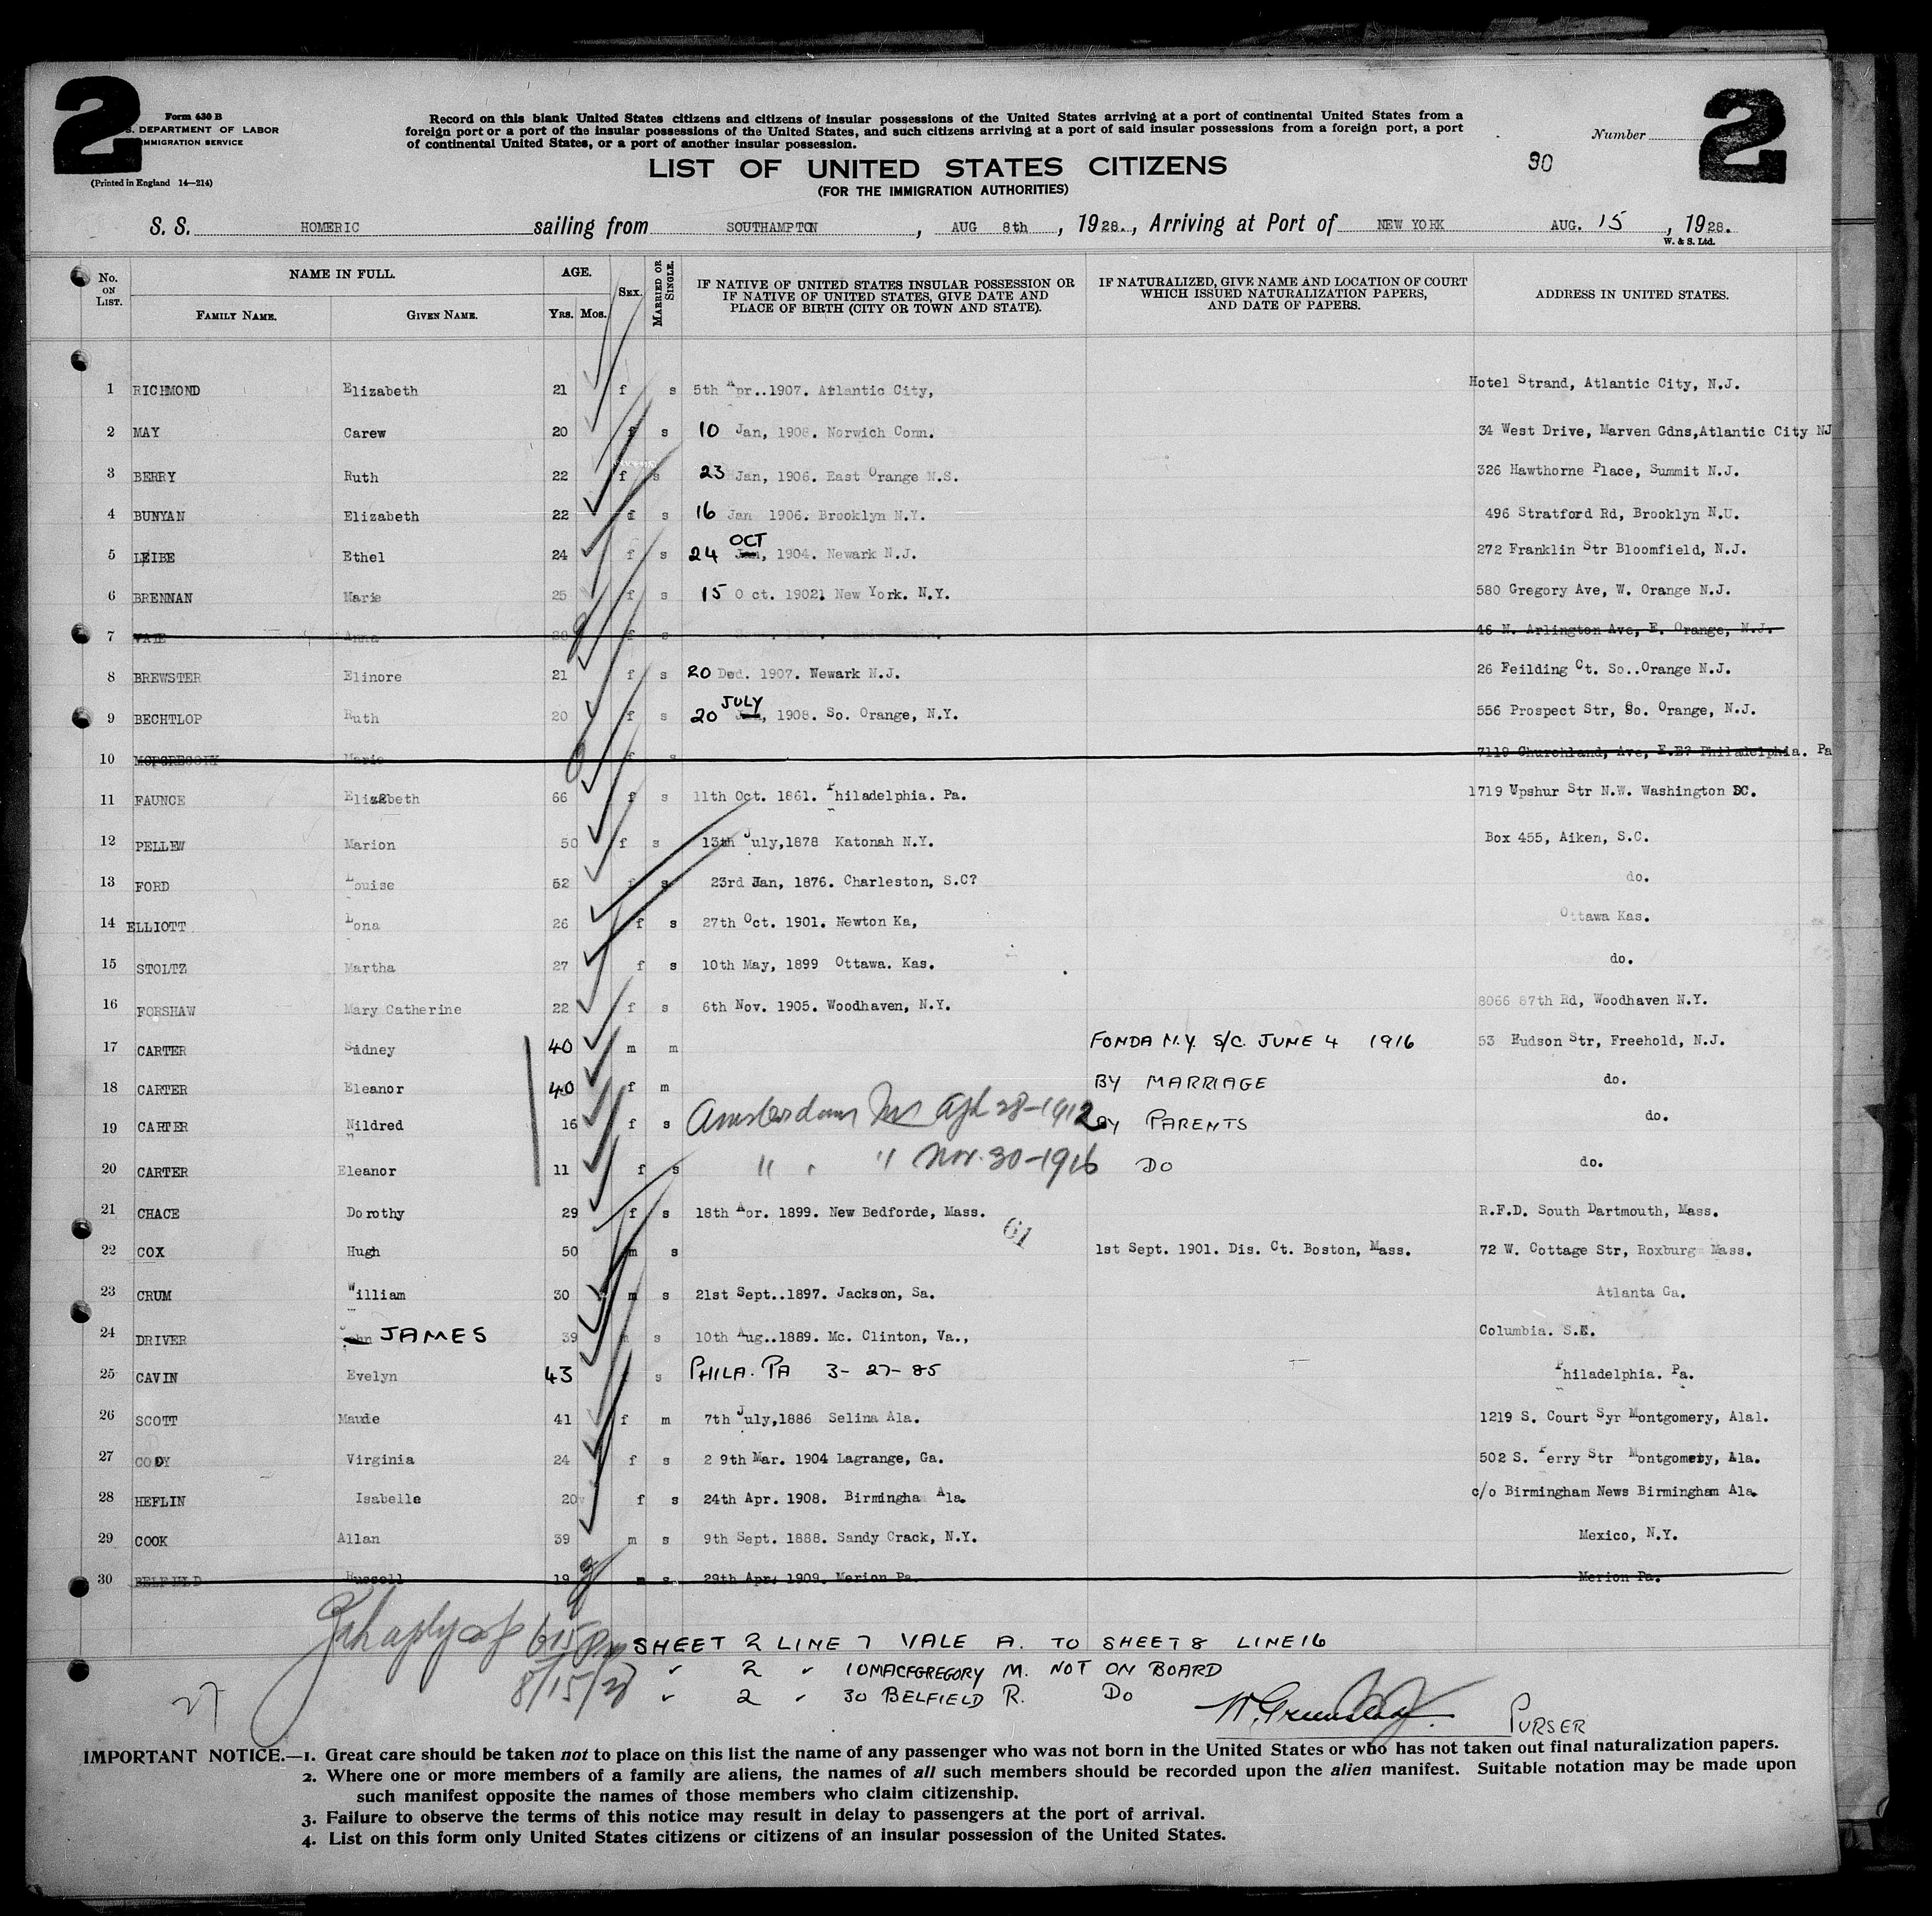 2
2
Form 630 B
S. DEPARTMENT OF LABOR
IMMIGRATION SERVICE
(Printed in England 14—214)
Record on this blank United States citizens and citizens of insular possessions of the United States arriving at a port of continental United States from a
foreign port or a port of the insular possessions of the United States, and such citizens arriving at a port of said insular possessions from a foreign port, a port
of continental United States, or a port of another insular possession.
Number
30
LIST OF UNITED STATES CITIZENS
(FOR THE IMMIGRATION AUTHORITIES)
S. S. HOMERIC sailing from SOUTHAMPTON, AUG 8th, 1928., Arriving at Port of NEW YORK AUG. 15, 1928.
W. & S. Ltd.
No. ON LIST. NAME IN FULL. FAMILY NAME. GIVEN NAME. AGE. YRS. MOS. SEX. MARRIED OR SINGLE. IF NATIVE OF UNITED STATES INSULAR POSSESSION OR IF NATIVE OF UNITED STATES, GIVE DATE AND PLACE OF BIRTH (CITY OR TOWN AND STATE). IF NATURALIZED, GIVE NAME AND LOCATION OF COURT WHICH ISSUED NATURALIZATION PAPERS, AND DATE OF PAPERS. ADDRESS IN UNITED STATES.
1 RICHMOND Elizabeth 21 f s 5th Apr..1907. Atlantic City, Hotel Strand, Atlantic City, N.J.
2 MAY Carew 20 f s 10 Jan, 1908. Norwich Conn. 34 West Drive, Marven Gdns,Atlantic City NJ
3 BERRY Ruth 22 f s 23 Jan, 1906. East Orange N.S. 326 Hawthorne Place, Summit N.J.
4 BUNYAN Elizabeth 22 f s 16 Jan 1906. Brooklyn N.Y. 496 Stratford Rd, Brooklyn N.U.
5 LEIBE Ethel 24 f s 24 OCT Jan, 1904. Newark N.J. 272 Franklin Str Bloomfield, N.J.
6 BRENNAN Marie 25 f s 15 Oct. 19021 New York. N.Y. 580 Gregory Ave, W. Orange N.J.
7 VALE Anna f s 46 N. Arlington Ave, E. Orange, N.J.
8 BREWSTER Elinore 21 f s 20 Ded. 1907. Newark N.J. 26 Feilding Ct. So..Orange N.J.
9 BECHTLOP Ruth 20 f s 20 JULY Jan, 1908. So. Orange, N.Y. 556 Prospect Str, So. Orange, N.J.
10 MCPGREGORY Marie f s 7119 Churchland, Ave, E.E? Philadelphia. Pa
11 FAUNCE Elizabeth 66 f s 11th Oct. 1861. Philadelphia. Pa. 1719 Upshur Str N.W. Washington DC.
12 PELLEW Marion 50 f s 13th July,1878 Katonah N.Y. Box 455, Aiken, S.C.
13 FORD Louise 52 f s 23rd Jan, 1876. Charleston, S.C? do.
14 ELLIOTT Lona 26 f s 27th Oct. 1901. Newton Ka, Ottawa Kas.
15 STOLTZ Martha 27 f s 10th May, 1899 Ottawa. Kas. do.
16 FORSHAW Mary Catherine 22 f s 6th Nov. 1905. Woodhaven, N.Y. 8066 87th Rd, Woodhaven N.Y.
17 CARTER Sidney 40 m m FONDA N.Y. S/C. JUNE 4 1916 53 Hudson Str, Freehold, N.J.
18 CARTER Eleanor 40 f m BY MARRIAGE do.
19 CARTER Mildred 16 f s Amsterdam Apl 28-1912 BY PARENTS do.
20 CARTER Eleanor 11 f s " " " Nov. 30-1916 DO do.
21 CHACE Dorothy 29 f s 18th Apr. 1899. New Bedforde, Mass. R.F.D. South Dartmouth, Mass.
61
22 COX Hugh 50 m s 1st Sept. 1901. Dis. Ct. Boston, Mass. 72 W. Cottage Str, Roxburg Mass.
23 CRUM William 30 m s 21st Sept..1897. Jackson, Sa. Atlanta Ga.
24 DRIVER John JAMES 39 m s 10th Aug..1889. Mc. Clinton, Va., Columbia. S.E.
25 CAVIN Evelyn 43 f s PHILA. PA 3-27-85 Philadelphia. Pa.
26 SCOTT Maude 41 f m 7th July,1886 Selina Ala. 1219 S. Court Syr Montgomery, Alal.
27 CODY Virginia 24 f s 2 9th Mar. 1904 Lagrange, Ga. 502 S. Perry Str Montgomety, Ala.
28 HEFLIN Isabelle 20 f s 24th Apr. 1908. Birmingha Ala. c/o Birmingham News Birmingham Ala.
29 COOK Allan 39 m s 9th Sept. 1888. Sandy Crack, N.Y. Mexico, N.Y.
30 BELFIELD Russell 19 m s 29th Apr. 1909. Merion Pa. Merion Pa.
615 Pm
8/15/28
27
SHEET 2 LINE 7 VALE A. TO SHEET 8 LINE 16
" 2 " 10 MACFGREGORY M. NOT ON BOARD
" 2 " 30 BELFIELD R. DO
PURSER
IMPORTANT NOTICE.—1. Great care should be taken not to place on this list the name of any passenger who was not born in the United States or who has not taken out final naturalization papers.
2. Where one or more members of a family are aliens, the names of all such members should be recorded upon the alien manifest. Suitable notation may be made upon
such manifest opposite the names of those members who claim citizenship.
3. Failure to observe the terms of this notice may result in delay to passengers at the port of arrival.
4. List on this form only United States citizens or citizens of an insular possession of the United States.